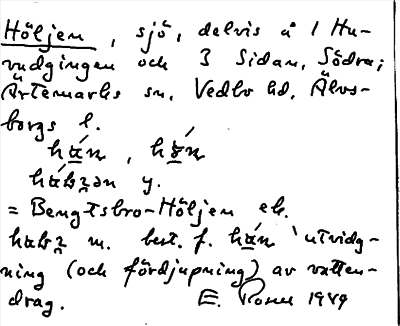 Höljen, sjö, delvis å 1 Hu-
vudgingen och 3 Sidan, Södra;
Ärtemarks sn, Vedbo hd, Älvs-
borgs l.
y.
= Bengtsbro-Höljen el.
m. best. f. 'utvidg-
ning (och fördjupning) av vatten-
drag. E. 1949